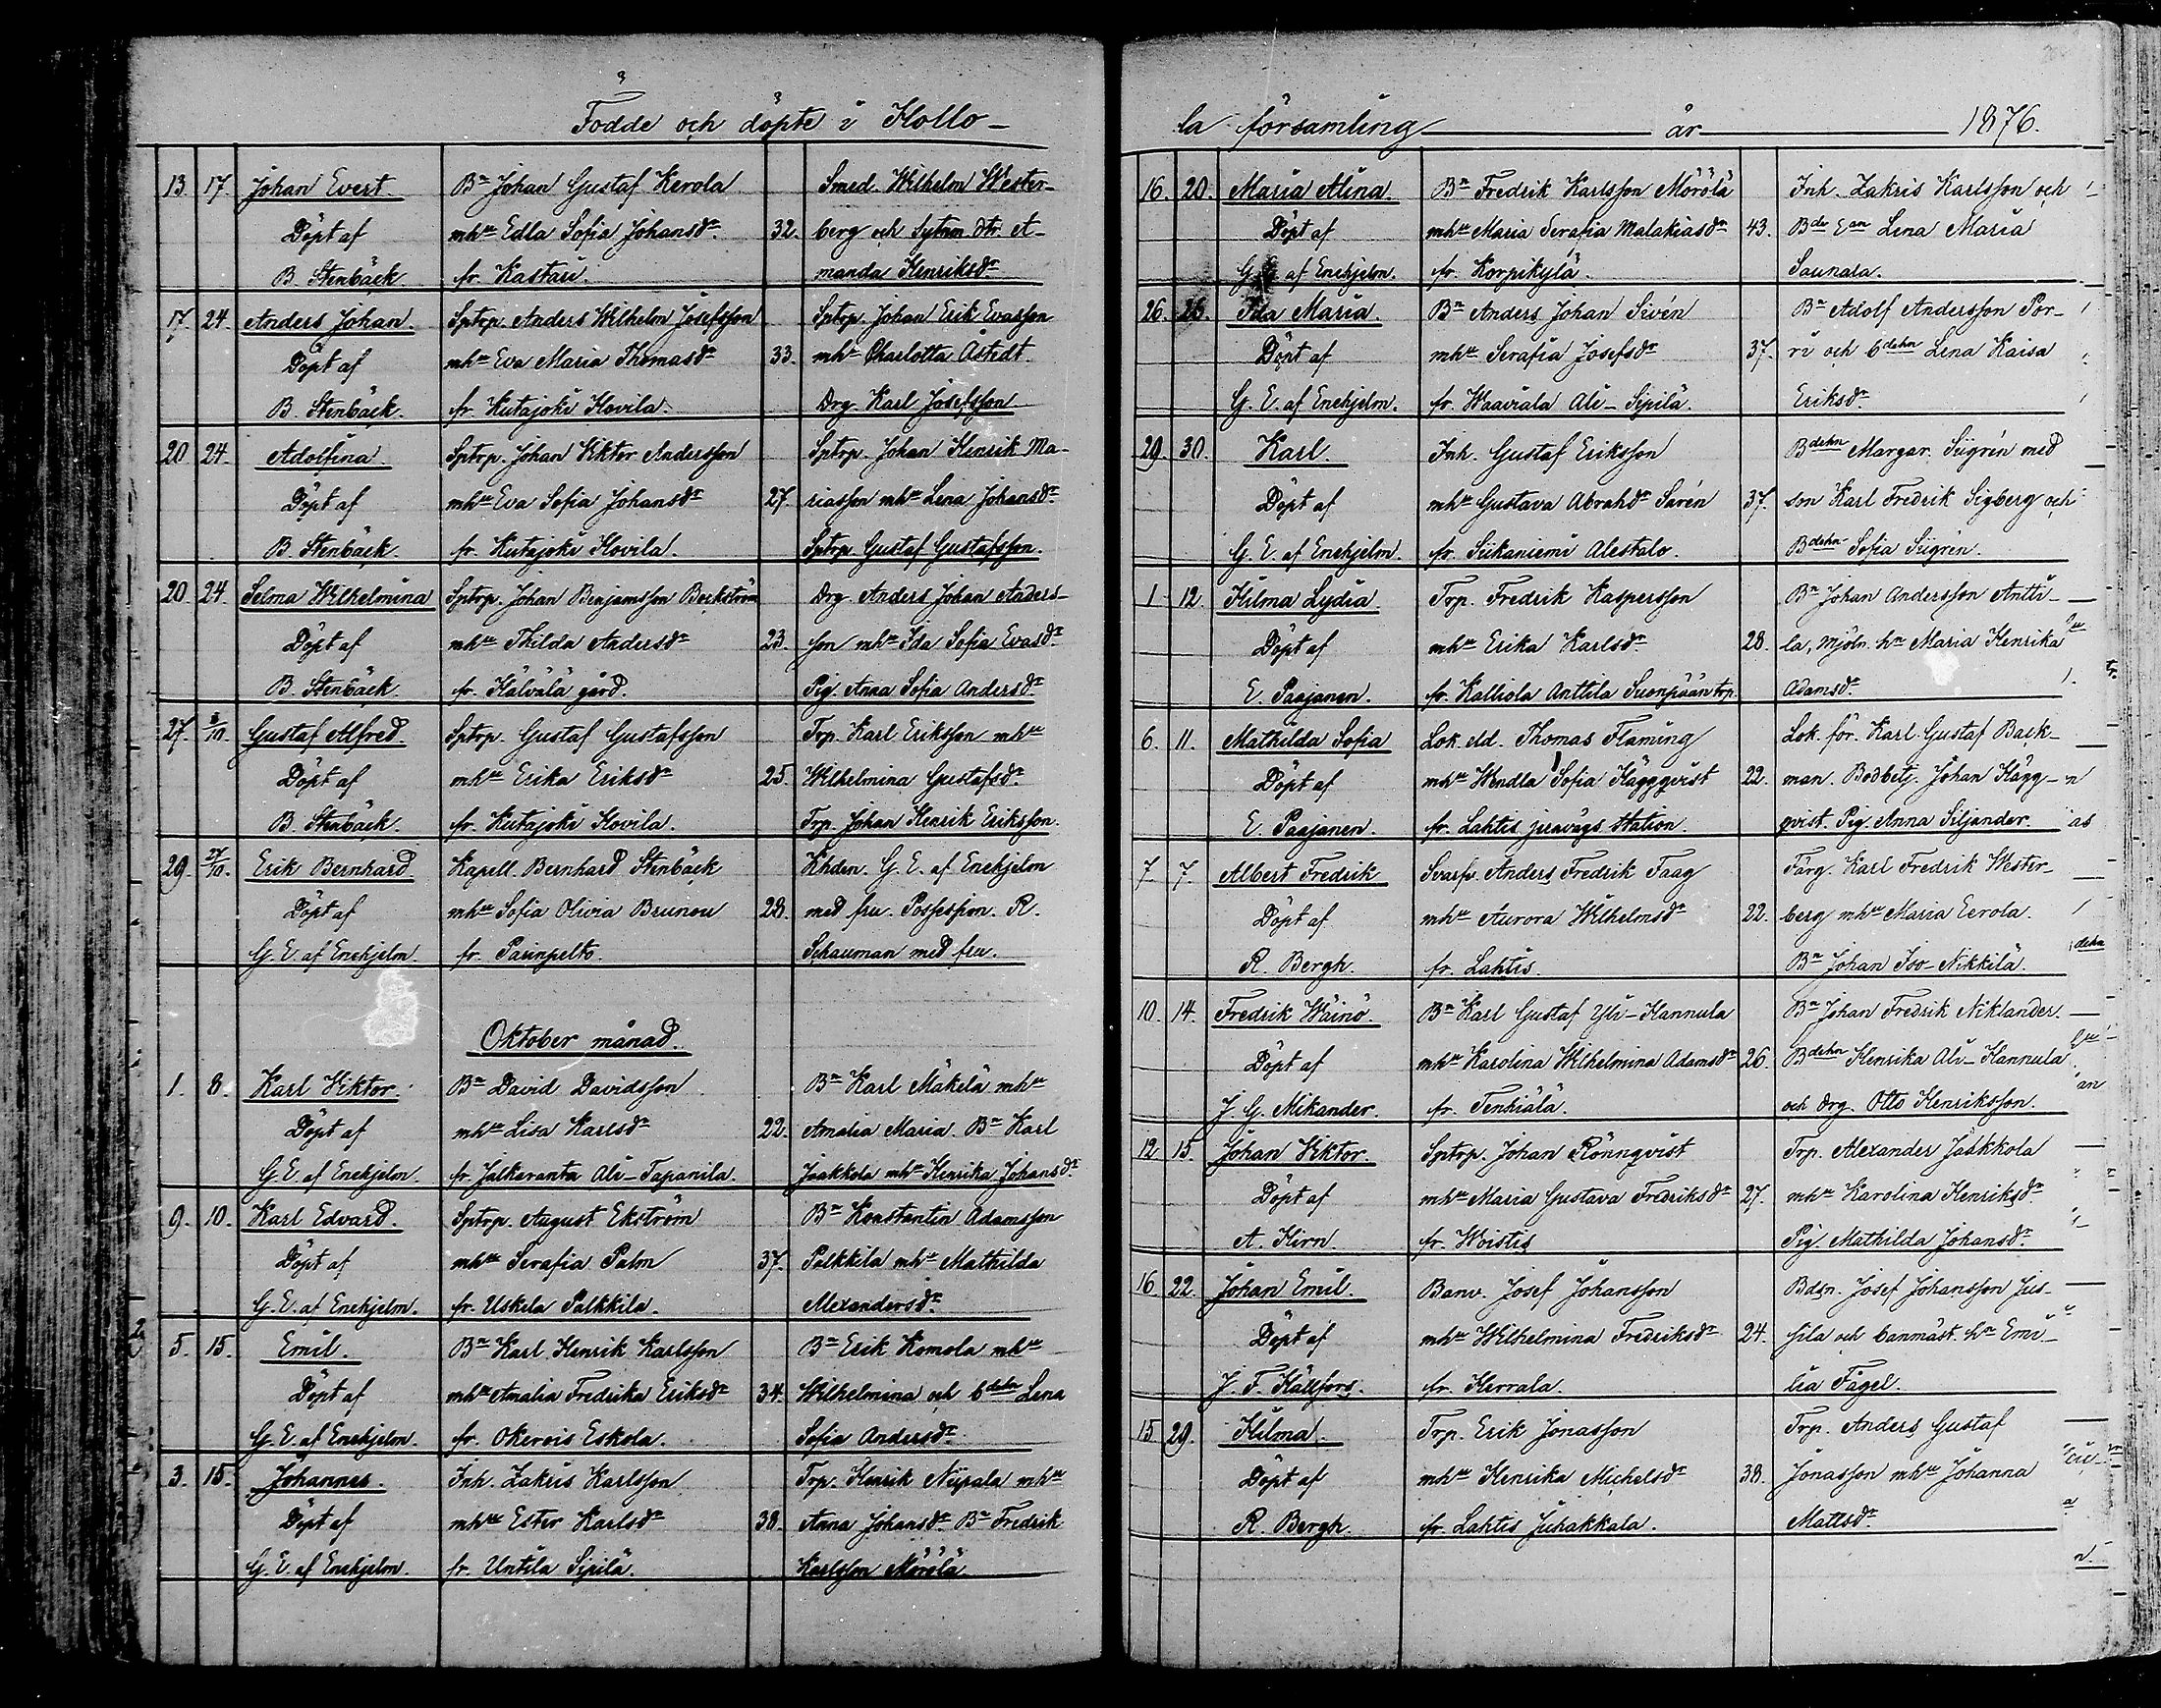 Födde och döpte i Hollo-
13. 17. Johan Evert. Bn Johan Gustaf Kerola Smed. Wilhelm Wester-
Döpt af mhu Edla Sofia Johansdr 32. berg och Sytnm dtr. A-
B. Stenbäck fr. Kastari. manda Henriksdr
17. 24. Anders Johan. Sptrp. Anders Wilhelm Josefsson Sptrp. Johan Erik Evasson
Döpt af mhu Eva Maria Thomasdr 33. mhu Charlotta Åstedt.
B. Stenbäck. fr. Kutajoki Hovila. Drg. Karl Josefsson
20 24. Adolfina. Sptrp. Johan Viktor Andersson Sptrp. Johan Henrik Ma-
Döpt af mhu Eva Sofia Johansdr 27. riasson mhu Lena Johansdr
B. Stenbäck. fr. Kutajoki Hovila. Sptrp. Gustaf Gustafsson.
20. 24. Selma Wilhelmina Sptrp. Johan Benjamsson Beckström Drg. Anders Johan Anders-
Döpt af mhu Thilda Andersdr 23. son mhu Ida Sofia Evasdr
B. Stenbäck fr. Hälvälä gård. Pig. Anna Sofia Andersdr
27. /10. Gustaf Alfred. Sptrp. Gustaf Gustafsson Trp. Karl Eriksson mhu
Döpt af mhu Erika Eriksdr 25. Wilhelmina Gustafsdr.
B. Stenbäck. fr. Kutajoki Hovila. Trp. Johan Henrik Eriksson.
29. 27/10. Erik Bernhard Kapell. Bernhard Stenbäck Khdrn. G. E. af Enehjelm
Döpt af mhu Sofia Olivia Brunou 28. med fru. Possession. R.
G. E. af Enehjelm fr. Parinpelto. Schauman med fru.
Oktober månad.
1. 8. Karl Viktor. Bn David Davidsson Bn Karl Mäkelä mhu
Döpt af mhu Lisa Karlsdr 22. Amalia Maria. Bn Karl
G. E. af Enehjelm. fr. Jalkaranta Ali-Tapanila. Jaakkola mhu Henrika Johansdr
9. 10. Karl Edvard. Sptrp. August Ekström Bn Konstantin Adamsson
Döpt af mhu Serafia Palm 37. Palkkila mhu Mathilda
G. E. af Enehjelm. fr. Uskila Palkkila. Alexandersdr.
5. 15. Emil. Bn Karl Henrik Karlsson Bn Erik Komola mhu
Döpt af mhu Amalia Fredrika Eriksdr 34. Wilhelmina och bdehn Lena
G. E. af Enehjelm. fr. Okerois Eskola. Sofia Andersdr
3. 15. Johannes. Inh. Zakris Karlsson Trp. Henrik Niipala mhu
Döpt af mhu Ester Karlsdr 38. Anna Johansdr. Bn Fredrik
G. E. af Enehjelm. fr. Untila Sipilä. Karlsson Mörölä.
la församling år 1876.
16. 20. Maria Alina. Bn Fredrik Karlsson Mörölä Inh. Zakris Karlsson och
Döpt af mhu Maria Serafia Malakiasdr 43. Bde Ean Lena Maria
G. E. af Enehjelm. fr. Korpikylä. Saunala.
26. 26. Ida Maria. Bn Anders Johan Sivén Bn Adolf Andersson Por-
Döpt af mhu Serafia Josefsdr 37. ri och bdehn Lena Kaisa
G. E. af Enehjelm. fr. Waaviala Ali-Sipilä. Eriksdr.
29. 30. Karl. Inh. Gustaf Eriksson Bdehn Margar. Siigrén med
Döpt af mhu Gustava Abrahdr Sarén 37. son Karl Fredrik Sigberg och
G. E. af Enehjelm. fr. Siikaniemi Alestalo. Bdehn Sofia Siigrén.
1. 12. Hilma Lydia Trp. Fredrik Kaspersson Bn Johan Andersson Antti-
Döpt af mhu Erika Karlsdr 28. la, Mjöln. hn Maria Henrika
E. Paajanen. fr. Kalliola Anttila Suonpään trp. Adamsdr.
6. 11. Mathilda Sofia Lok. eld. Thomas Flaming Lok. för. Karl Gustaf Back-
Döpt af mhu Wendla Sofia Häggqvist 22. man. Bodbetj. Johan Hägg-
E. Paajanen. fr. Lahtis jernvägs station. qvist. Pig. Anna Siljander.
7 7. Albert Fredrik Svarfv. Anders Fredrik Taag Färg. Karl Fredrik Wester-
Döpt af mhu Aurora Wilhelmsdr 22. berg mhu Maria Eerola.
R. Bergh. fr. Lahtis. Bn Johan Iso-Nikkilä.
10. 14. Fredrik Wäinö. Bn Karl Gustaf Yli-Hannula Bn Johan Fredrik Niklander.
Döpt af mhu Karolina Wilhelmina Adamsdr 26. Bdehn Henrika Ali-Hannula
J. G. Mikander. fr. Tenhiälä. och drg. Otto Henriksson.
12 15. Johan Viktor. Sptrp. Johan Rönnqvist Trp. Alexander Jaakkola
Döpt af mhu Maria Gustava Fredriksdr 27. mhu Karolina Henriksdr
A. Hirn. fr. Woistis Pig. Mathilda Johansdr.
16. 22. Johan Emil. Banv. Josef Johansson Bdsn. Josef Johansson Jus-
Döpt af mhu Wilhelmina Fredriksdr 24. sila och banmäst. hn Emi-
J. F. Hällfors. fr. Herrala. lia Fagel.
15 29. Hilma. Trp. Erik Jonasson Trp. Anders Gustaf
Döpt af mhu Henrika Michelsdr 38. Jonasson mhu Johanna
R. Bergh. fr. Lahtis Juhakkala. Mattsdr.